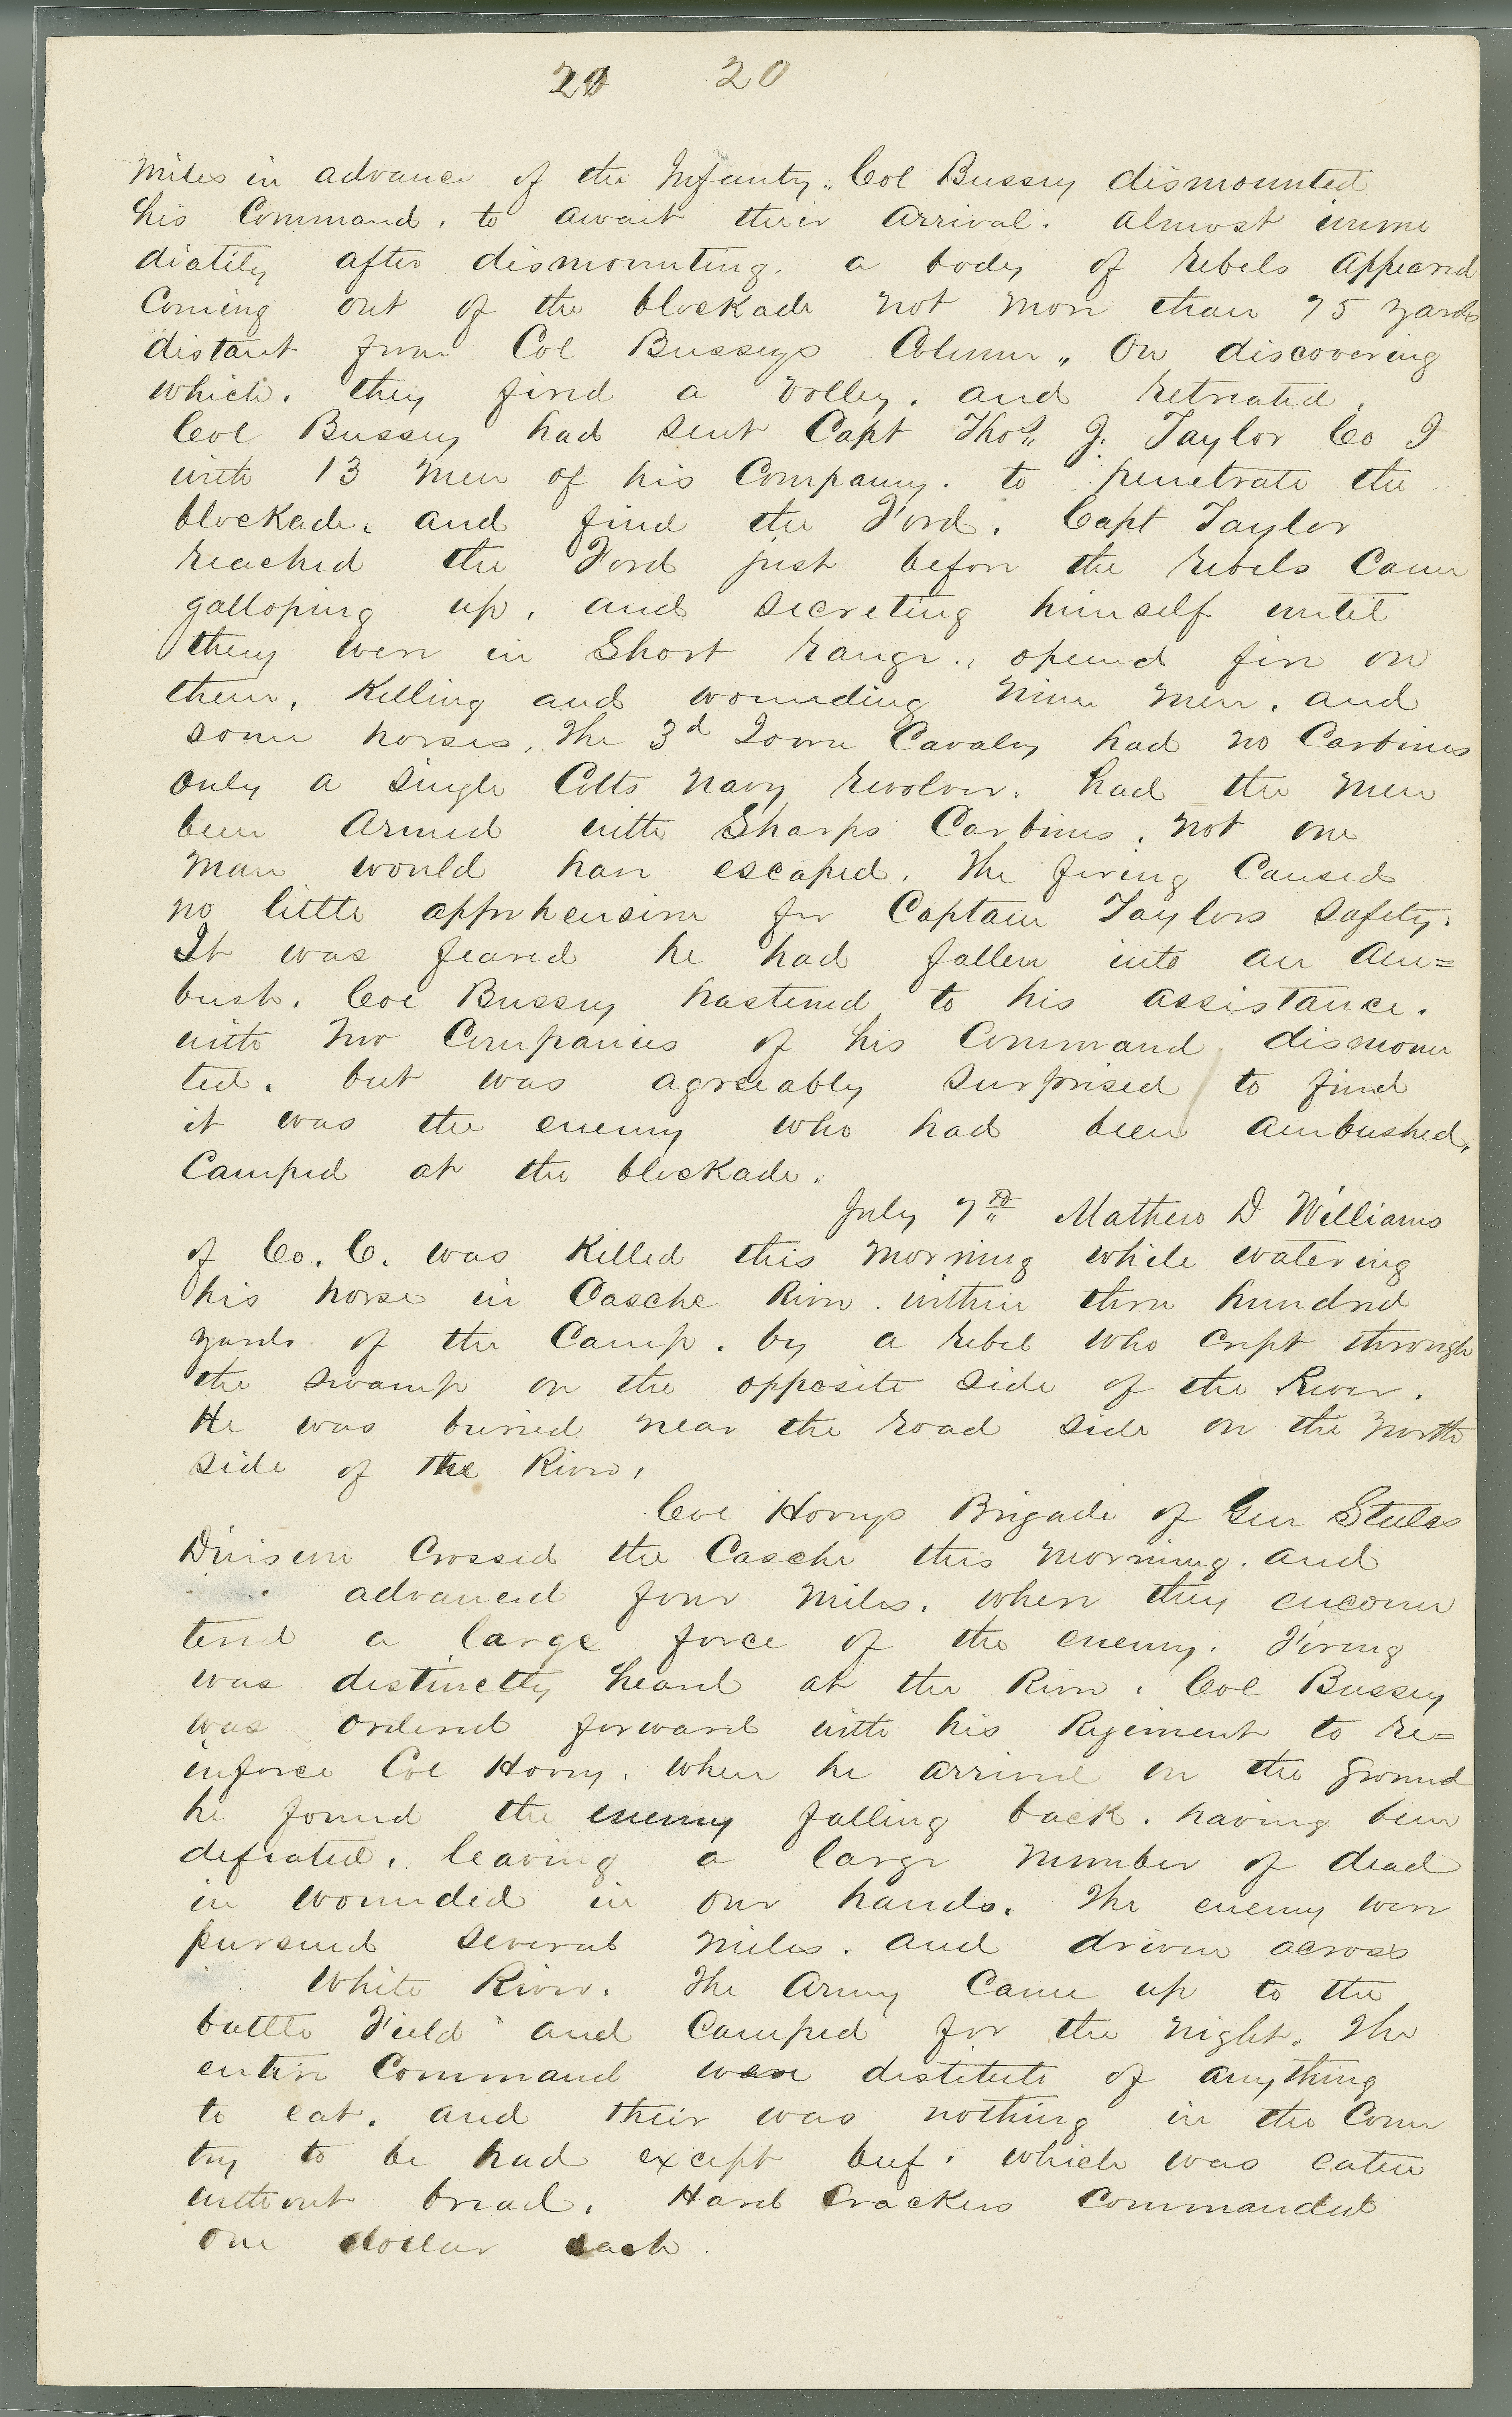 20 20
miles in advance of the Infantry. Col Bussey dismounted
his Command, to await their arrival. almost imme
diatily after dismounting. a body of rebels appeared
Coming out of the blockade not more than 75 yards
distant from Col Busseys Column, On discovering
which, they fired a volley, and retreated,
Col Bussey had sent Capt Thos. J. Taylor Co I
with 13 men of his Company. to penetrate the
blockade, and find the Ford. Capt Taylor
reached the Ford just before the rebels came
galloping up, and secreting himself until
they were in Short range, opened fire on
them, Killing and wounding nine men, and
some horses, The 3d Iowa Cavalry had no Carbines
only a single Colts navy revolver. had the men
been Armed with Sharps Carbines, not one
man would have escaped. The firing Caused
no little apprehension for Captain Taylors safety.
It was feared he had fallen into an am=
bush. Col Bussey hastened to his assistance.
with two Companies of his Command dismoun
ted. but was agreeably surprised to find
it was the enemy who had been ambushed,
Camped at the blockade.
July 7th Mathew D Williams
of Co. C. was Killed this morning while watering
his horse in Casche River. within three hundred
yards of the Camp. by a rebel who crept through
the swamp on the opposite side of the River.
He was buried near the road side on the North
side of the River,
Col Hoveys Brigade of Gen Steeles
Division Crossed the Casche this morning. and
advanced four miles. when they encoun
tered a large force of the enemy. Firing
was distinctly heard at the River. Col Bussey
was ordered forward with his Regiment to re=
inforce Col Hovey. When he arrived on the ground
he found the enemy falling back. having been
defeated, leaving a large number of dead
in wounded in our hands. The enemy were
pursued several miles. and driven across
White River. The Army Came up to the
battle Field and Camped for the night. The
entire Command were distitute of anything
to eat. and their was nothing in the Coun
try to be had except beef. which was eaten
without bread. Hard Crackers Commanded
one dollar each.